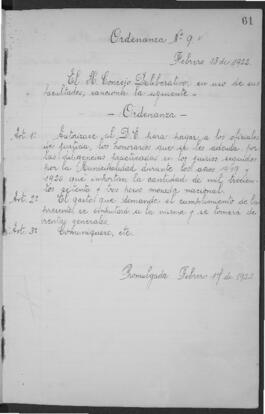 61
Ordenanza Nº 9.
Febrero 13 de 1922.
El H. Concejo Deliberativo, en uso de sus
facultades, sanciona la siguiente
- Ordenanza -
Art. 1º Autorízase al D. E. para pagar a los oficiales
de justicia, los honorarios que se les adeuda por
las diligencias practicadas en los juicios seguidos
por la Municipalidad durante los años 1919 y
1920 que importan la cantidad de mil trecien
tos setenta y tres peso moneda nacional.
Art. 2º El gasto que demande el cumplimiento de la
presente se imputará a la misma y se tomará de
rentas generales.
Art. 3º Comuníquese, etc.
Promulgada Febrero 17 de 1922